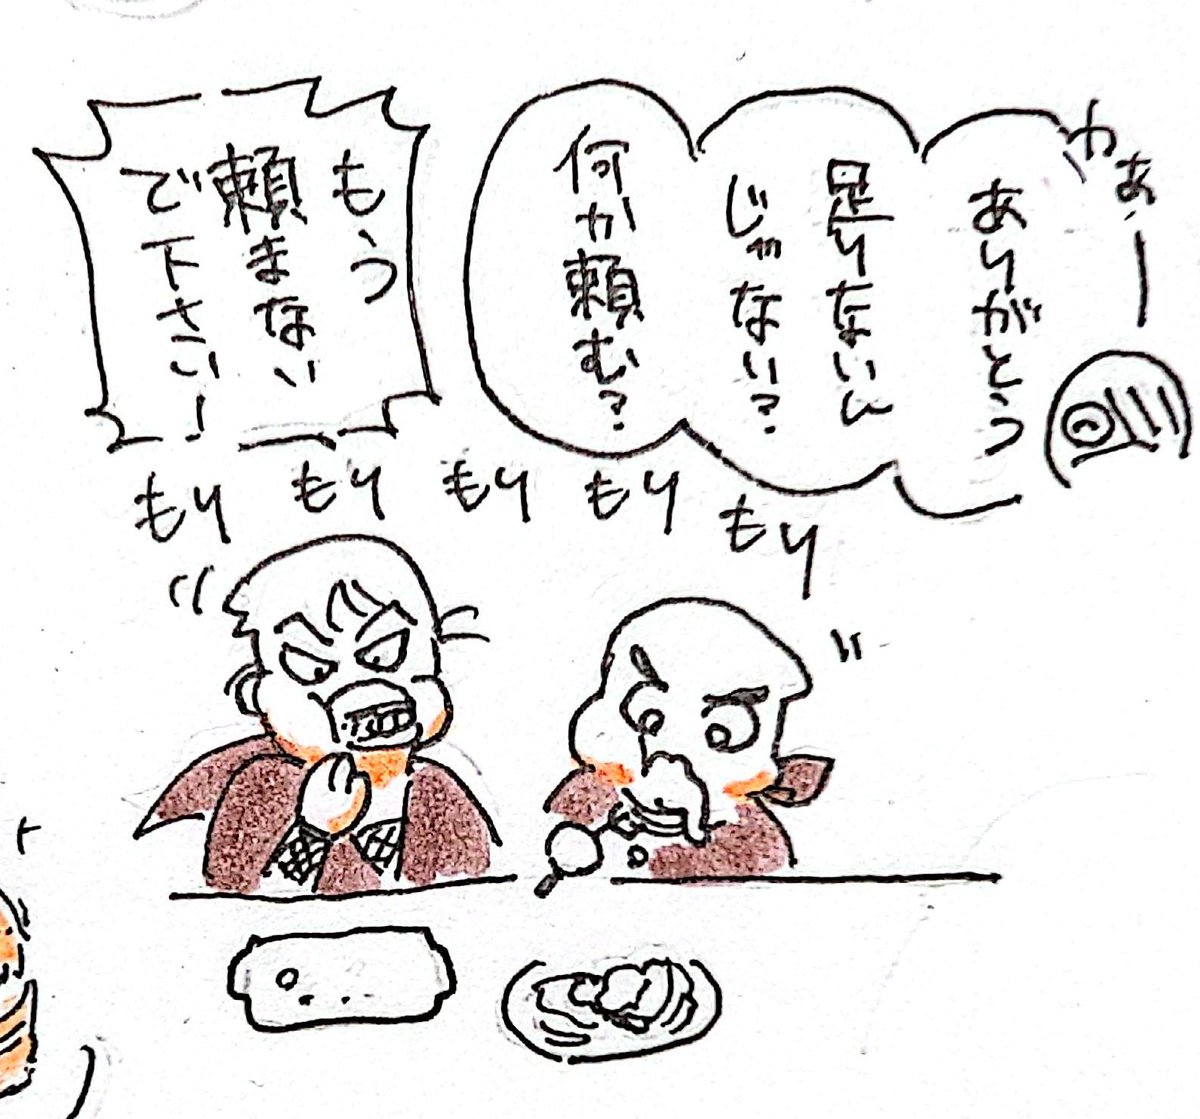 わぁー
ありがとう
足りないん
じゃない?
何か頼む?
もう
頼まない
で下さい!
もり
もり
もり
もり
もり